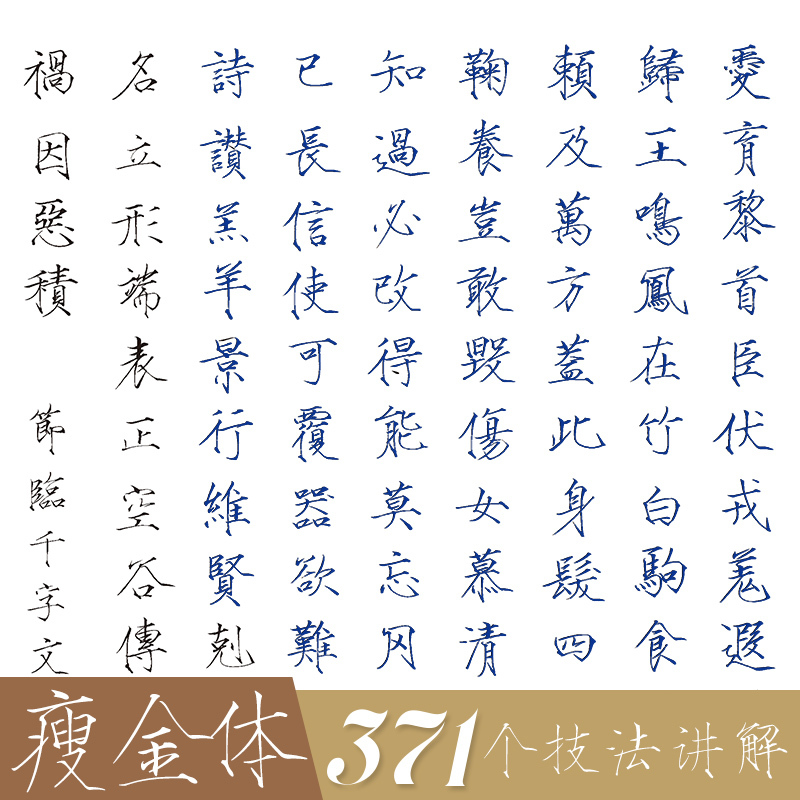 愛育黎首臣伏戎羌遐
歸王鳴鳳在竹白駒食
賴及萬方蓋此身髮四
鞠養豈敢毀傷女慕清
知過必改得能莫忘罔
已長信使可覆器欲難
詩讚羔羊景行維賢剋
名立形端表正空谷傳
禍因惡積
節臨千字文
瘦金体
371个技法讲解